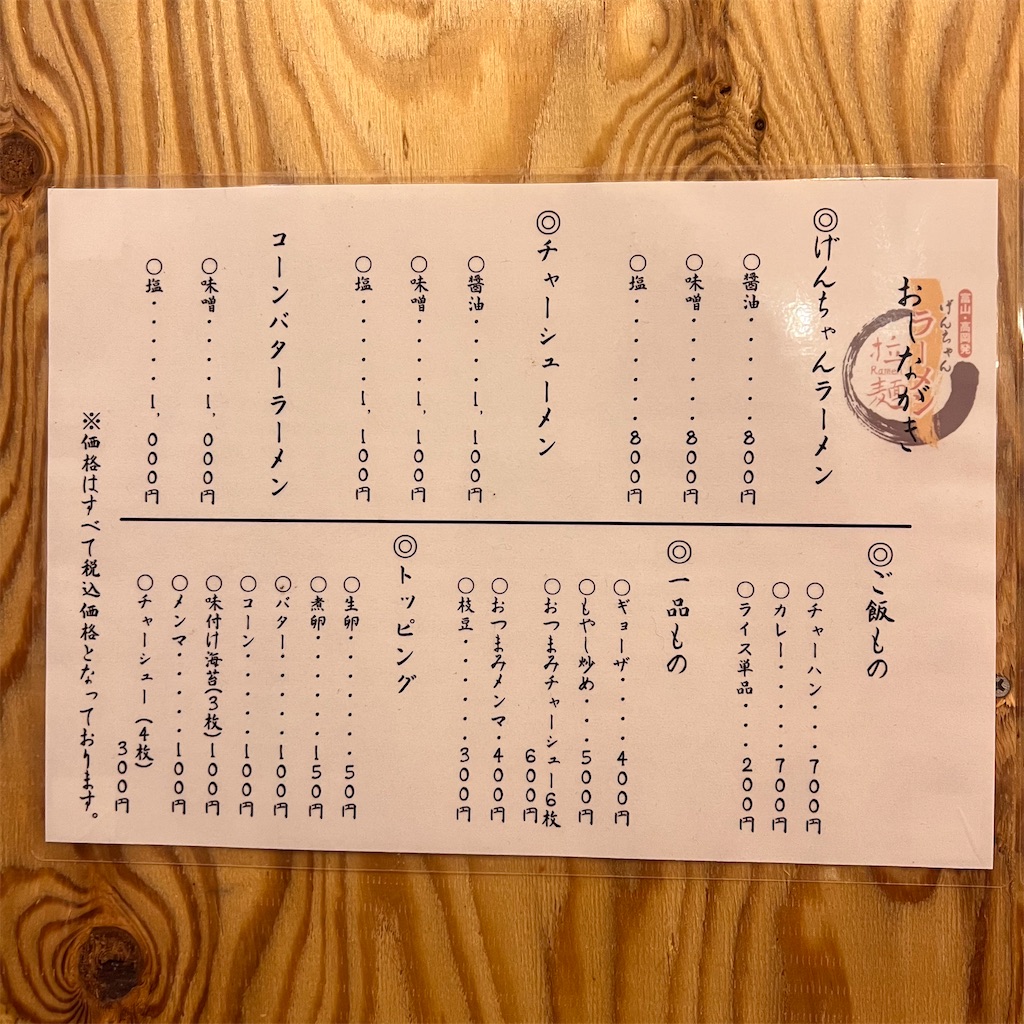 富山・高岡発
げんちゃん
ラーメン
拉麺
Ramen
おしながき
◎げんちゃんラーメン
○醤油・・・・・・・800円
○味噌・・・・・・・800円
○塩・・・・・・・・800円
◎チャーシューメン
○醤油・・・・・1,100円
○味噌・・・・・1,100円
○塩・・・・・・1,100円
コーンバターラーメン
○味噌・・・・・1,000円
○塩・・・・・・1,000円
◎ご飯もの
○チャーハン・・・700円
○カレー・・・・・700円
○ライス単品・・・200円
◎一品もの
○ギョーザ・・・・400円
○もやし炒め・・・500円
○おつまみチャーシュー6枚
600円
○おつまみメンマ・400円
○枝豆・・・・・・300円
◎トッピング
○生卵・・・・・・・50円
○煮卵・・・・・・150円
○バター・・・・・100円
○コーン・・・・・100円
○味付け海苔(3枚)100円
○メンマ・・・・・100円
○チャーシュー(4枚)
300円
※価格はすべて税込価格となっております。